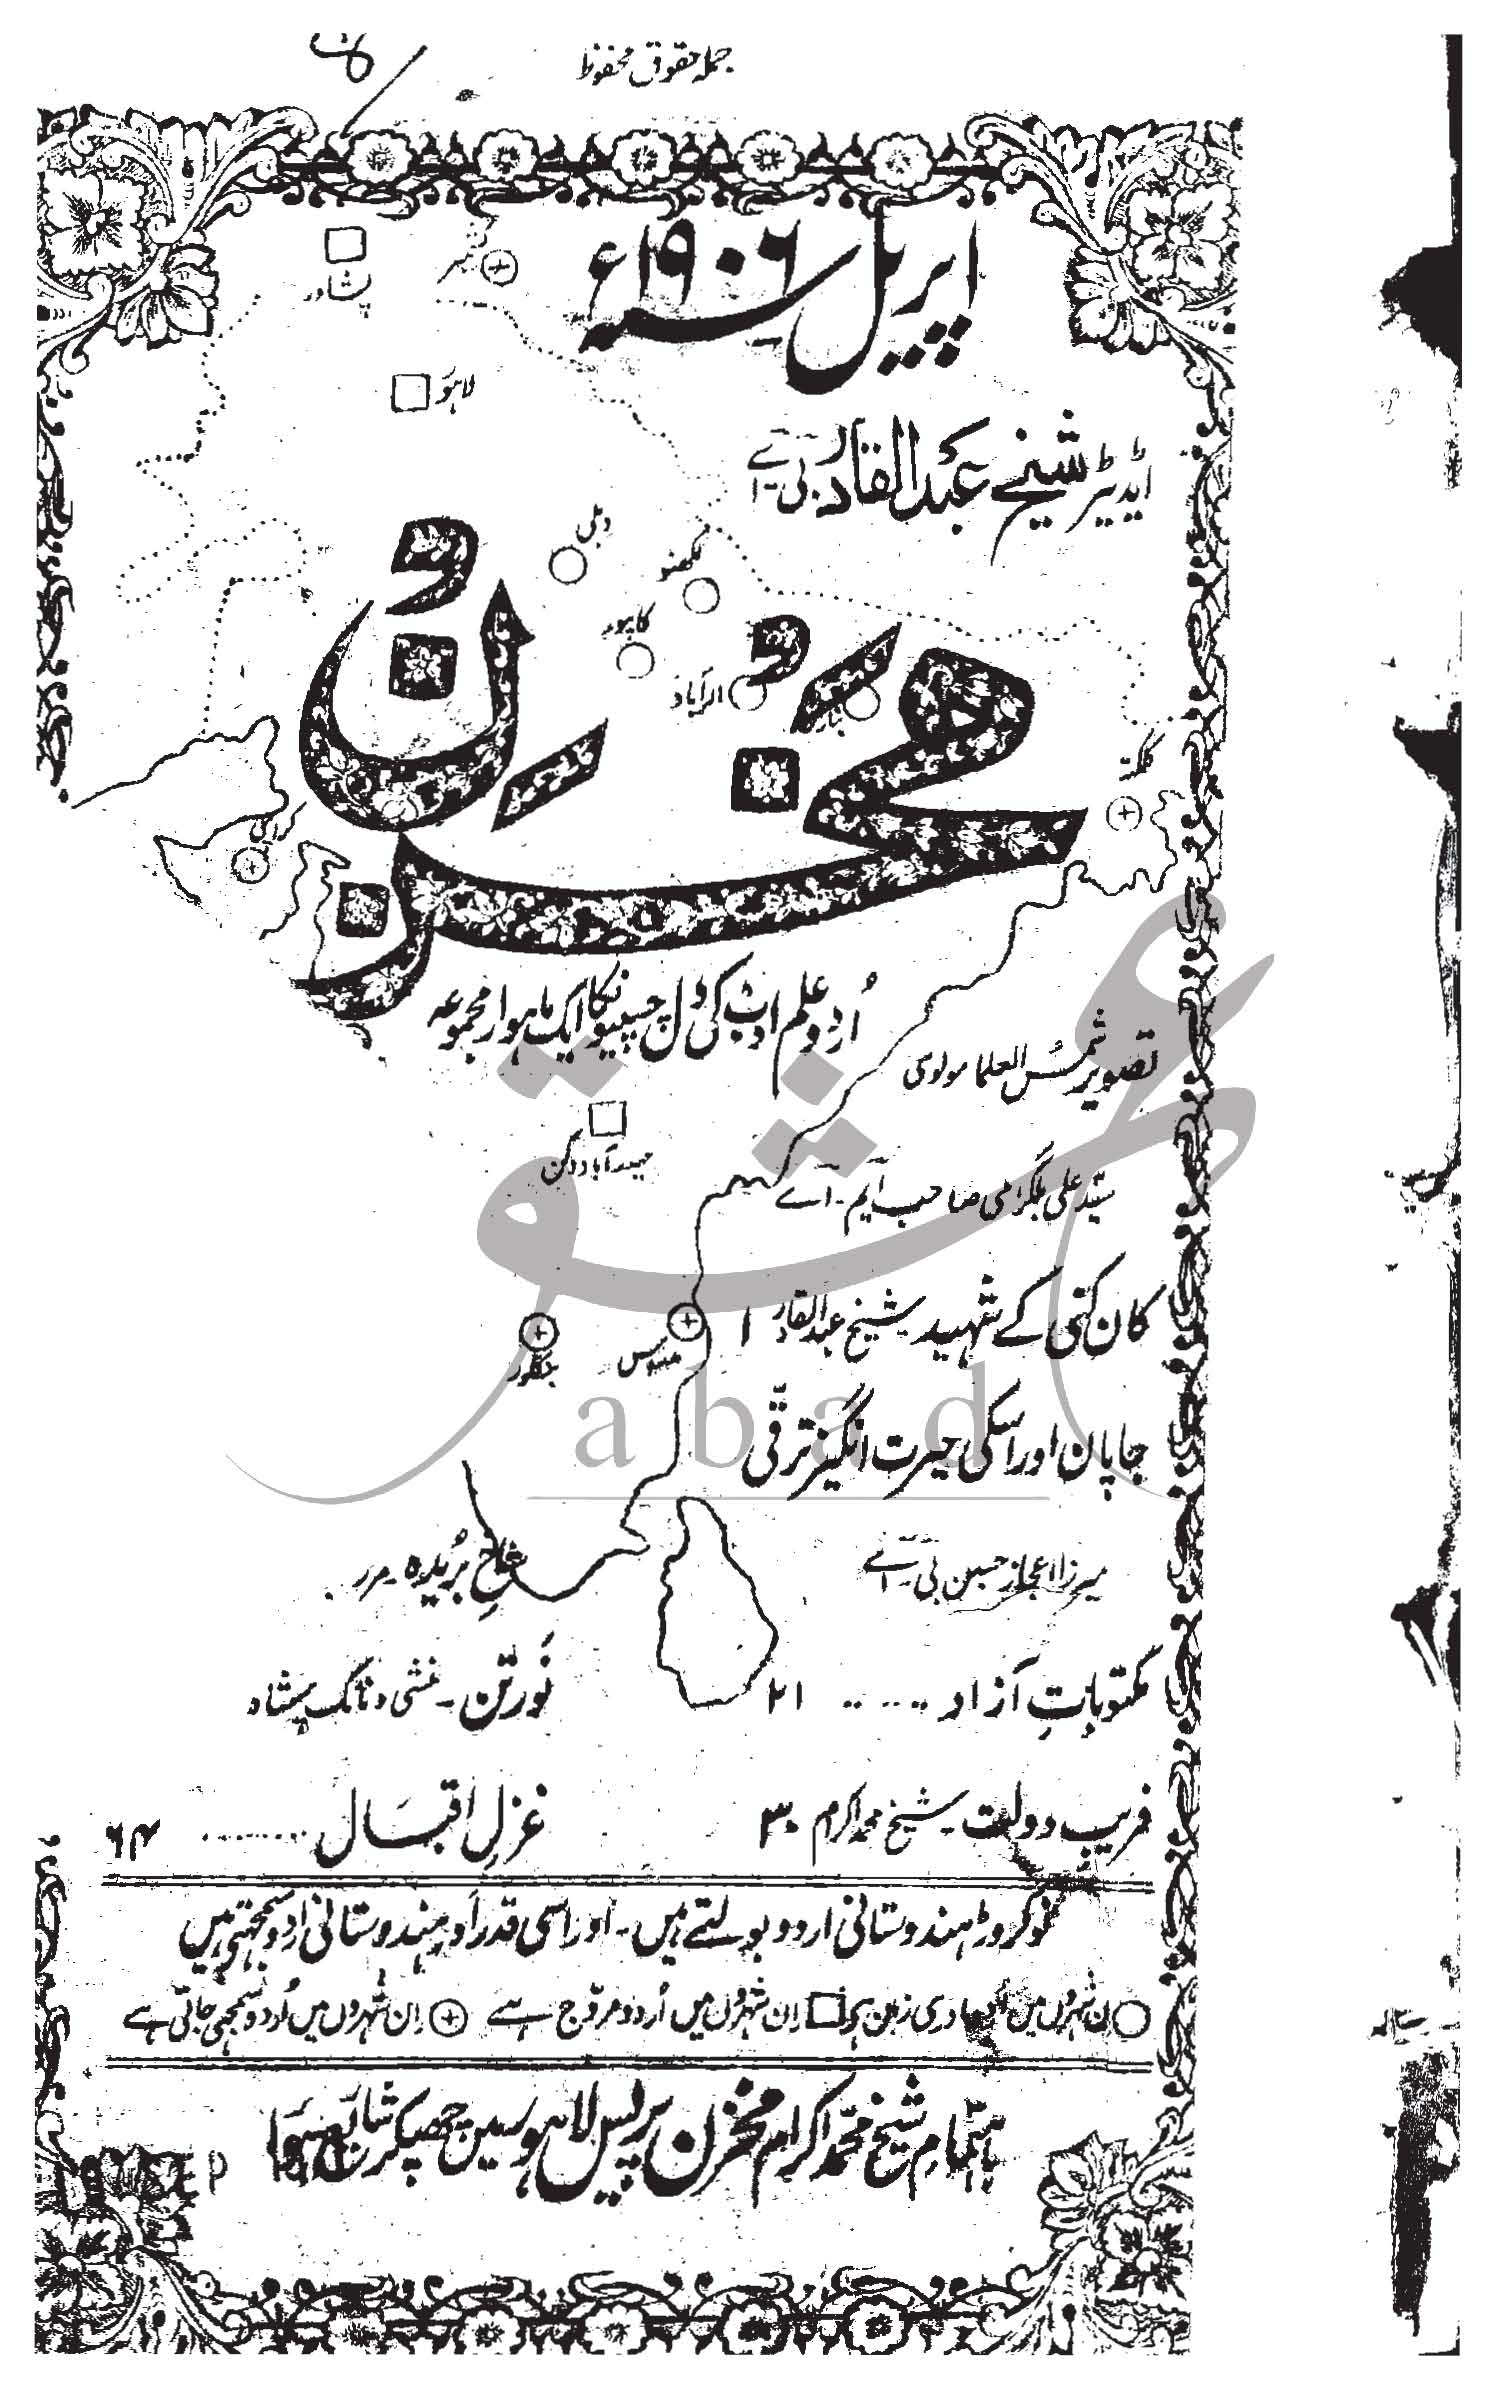 جملہ حقوق محفوظ
اپریل سنہ ۱۹۰۶ء
پشاور
کشمیر
لاہور
ایڈیٹر شیخ عبدالقادر بی۔اے
دہلی
لکھنو
کانپور
الہ آباد
بنارس
کلکتہ
کراچی
مخزن
اُردو علم ادب کی دلچسپیونکا ایک ماہوار مجموعہ
تصویر شمس العلما مولوی
حیدرآباد دکن
سید علی بلگرامی صاحب ایم۔اے
کان کنی کے شہید۔ شیخ عبدالقادر ۱
مدراس
بنگلور
abad
جاپان اور اسکی حیرت انگیز ترقی
میرزا اعجاز حسین بی۔اے
شاخِ بُریدہ۔ مرر
مکتوباتِ آزاد ۲۱
نورتن۔ منشی ونائک پرشاد
فریب دولت۔ شیخ محمد اکرام ۳۰
غزلِ اقبال ۶۴
نو کروڑ ہندوستانی اردو بولتے ہیں۔ اور اسی قدر اور ہندوستانی اردو سمجھتے ہیں
اِن شہروں میں اُردو مروّج ہے
اِن شہروں میں اُردو سمجھی جاتی ہے
باہتمام شیخ محمد اکرام مخزن پریس لاہور میں چھپکر شائع ہوا